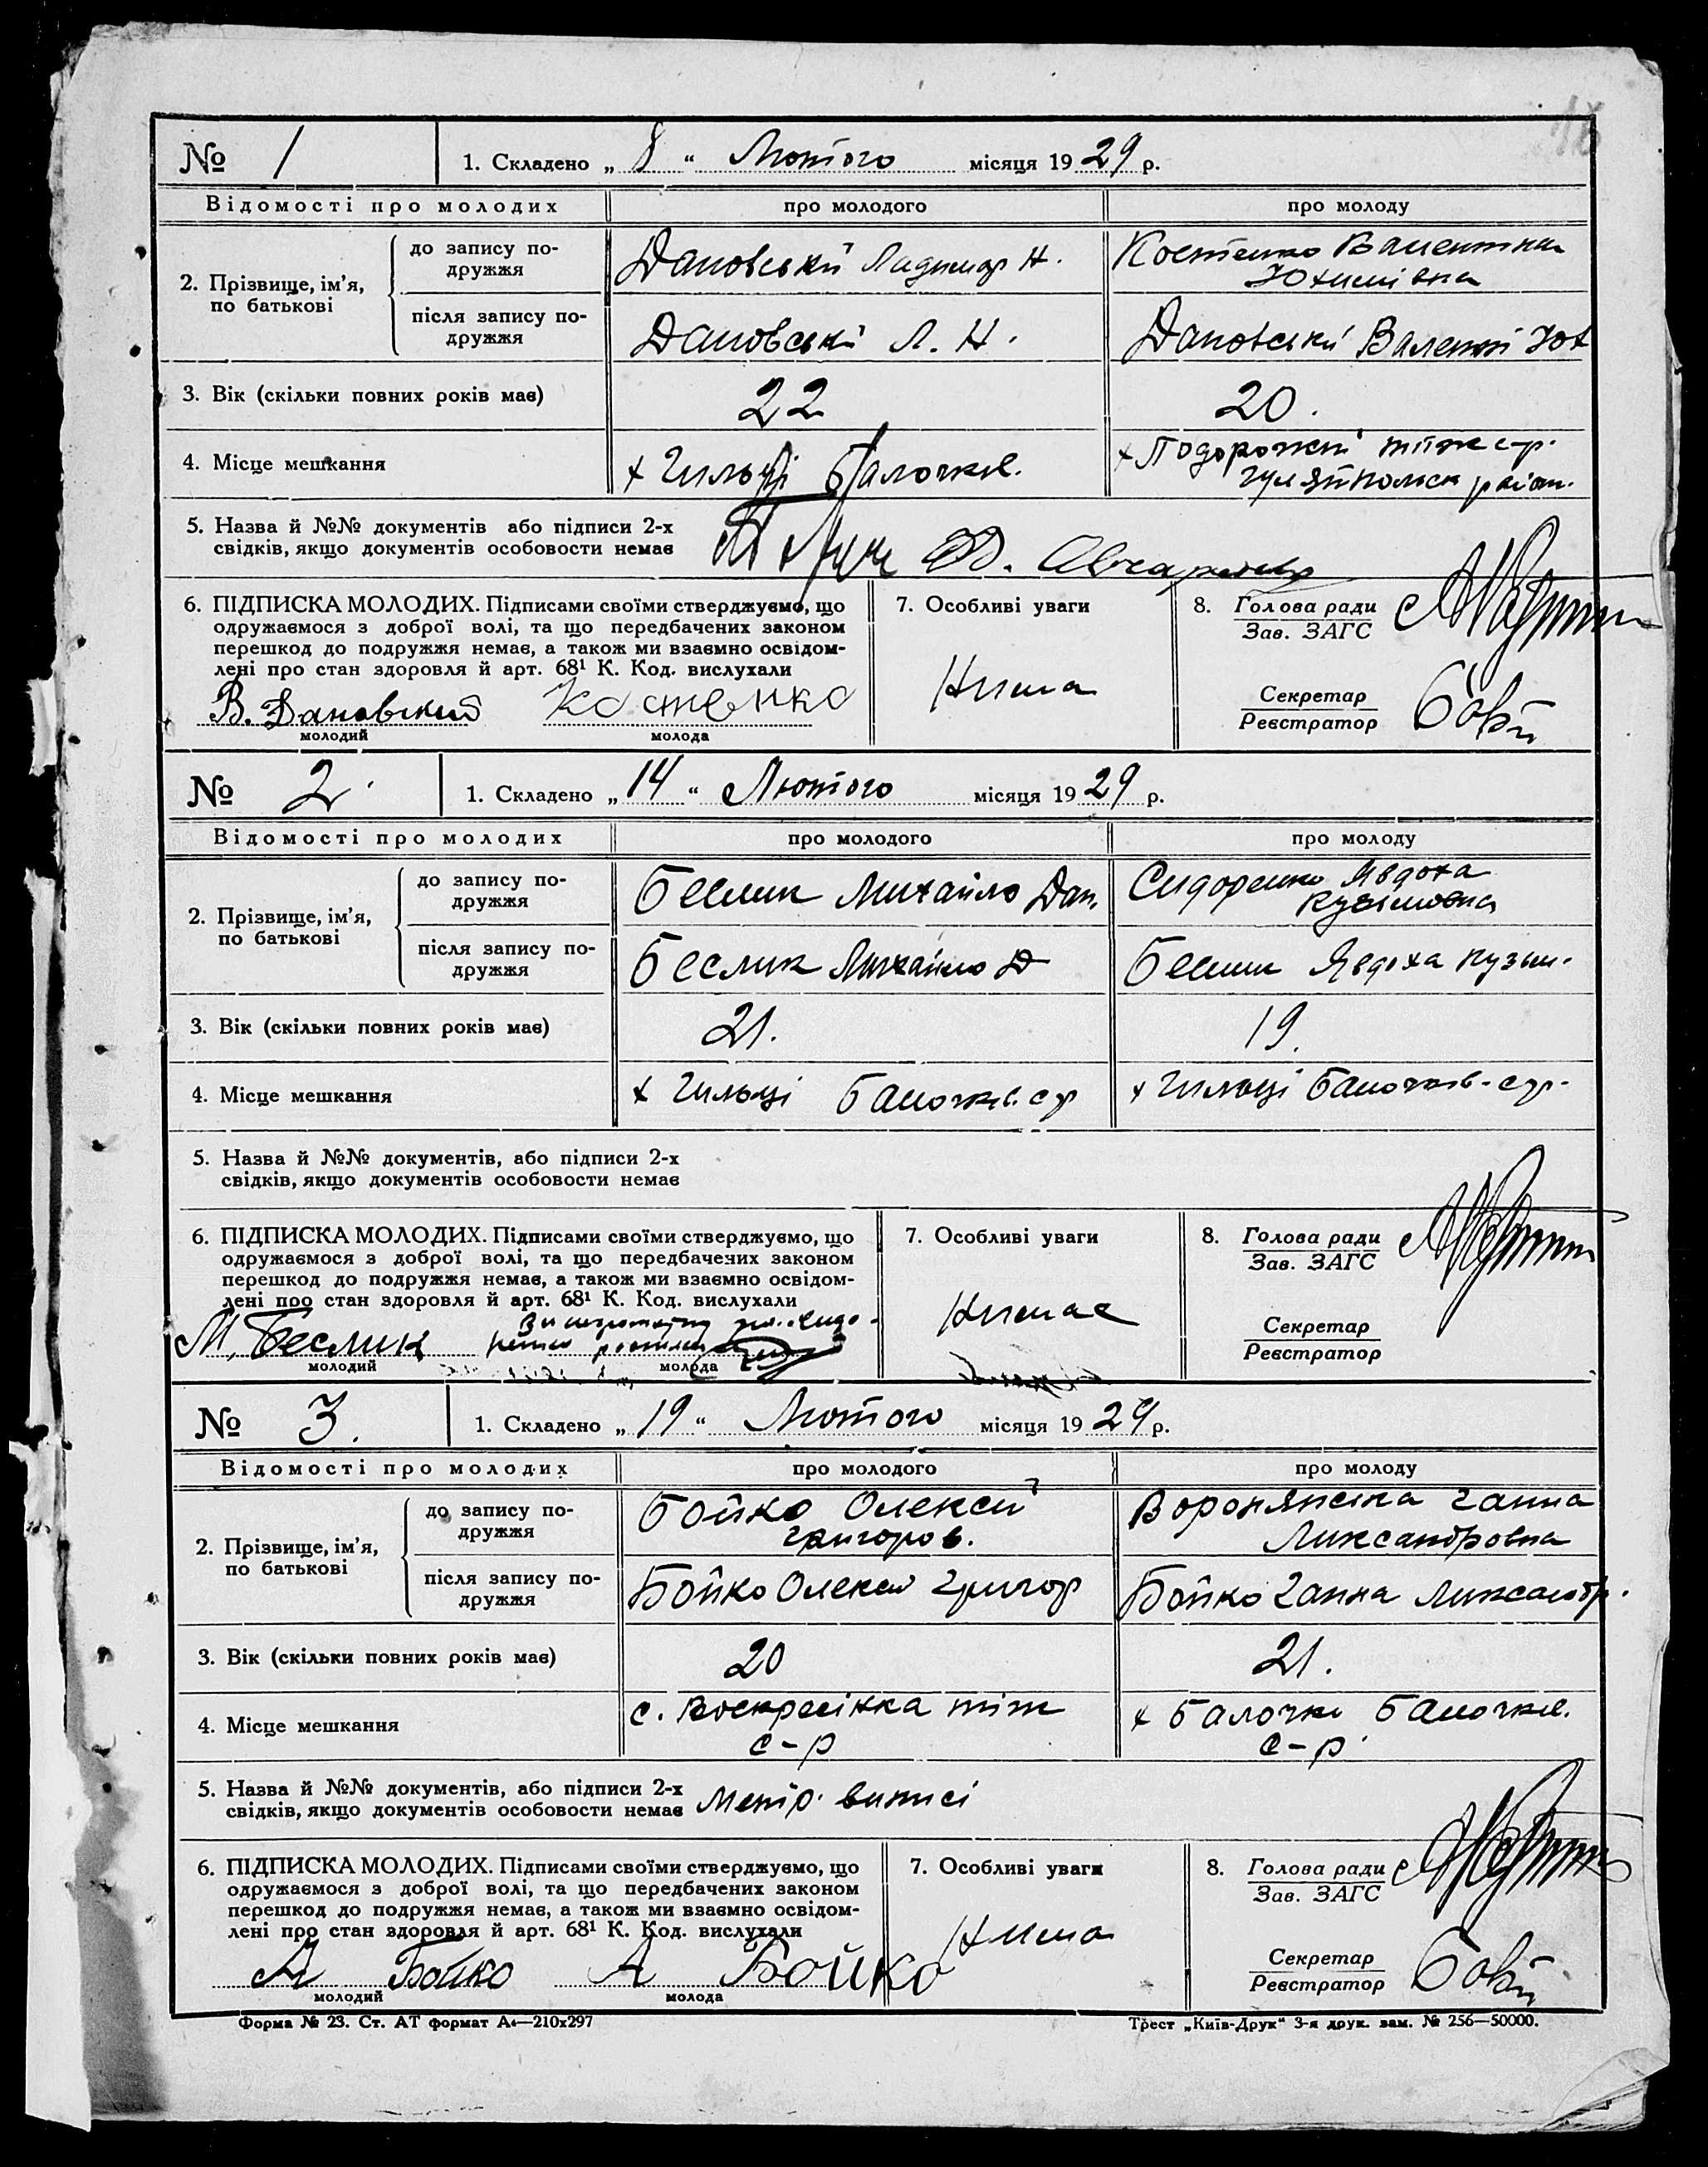 № 1 1. Складено „ 8 “ Лютого місяця 19 29 р.
Відомості про молодих про молодого про молоду
2. Прізвище, ім’я, по батькові
до запису по-
дружжя
Дановський Ладимир Н. Костенко Валентина
Юхимівна
після запису по-
дружжя
Дановські Л. Н. Дановські Валент Юх
3. Вік (скільки повних років має) 22 20.
4. Місце мешкання х Гильці Балочків. х Подорожній тіж с-р.
Гуляйпольск район.
5. Назва й №№ документів або підписи 2-х
свідків, якщо документів особовости немає
6. ПІДПИСКА МОЛОДИХ. Підписами своїми стверджуємо, що
одружаємося з доброї волі, та що передбачених законом
перешкод до подружжя немає, а також ми взаємно освідом-
лені про стан здоровля й арт. 68¹ К. Код. вислухали
В. Дановский Костенко
молодий молода
7. Особливі уваги
Нима
8. Голова ради
Зав. ЗАГС
Секретар
Реєстратор
№ 2. 1. Складено „ 14 “ Лютого місяця 19 29 р.
Відомості про молодих про молодого про молоду
2. Прізвище, ім’я,
по батькові
до запису по-
дружжя
Беслик Михайло Дан. Сидоренко Явдоха
Кузьмовна
після запису по-
дружжя
Беслик Михайло Д Беслик Явдоха Кузьм.
3. Вік (скільки повних років має) 21. 19.
4. Місце мешкання х Гильці Балочків. с р х Гильці Балочків. с-р.
5. Назва й №№ документів, або підписи 2-х
свідків, якщо документів особовости немає
6. ПІДПИСКА МОЛОДИХ. Підписами своїми стверджуємо, що
одружаємося з доброї волі, та що передбачених законом
перешкод до подружжя немає, а також ми взаємно освідом-
лені про стан здоровля й арт. 68¹ К. Код. вислухали
М. Беслик
молодий молода
7. Особливі уваги
Нимає
8. Голова ради
Зав. ЗАГС
Секретар
Реєстратор
№ 3. 1. Складено „ 19 “ Лютого місяця 19 29 р.
Відомості про молодих про молодого про молоду
2. Прізвище, ім’я,
по батькові
до запису по-
дружжя
Бойко Олексій Воронянська Ганна
Григоров. Ликсандровна
після запису по-
дружжя
Бойко Олексій Григор Бойко Ганна Ликсандр.
3. Вік (скільки повних років має) 20 21.
4. Місце мешкання с. Воскресінка тіж х Балочки Балочків.
с-р с-р.
5. Назва й №№ документів, або підписи 2-х
свідків, якщо документів особовости немає Метр. виписі
6. ПІДПИСКА МОЛОДИХ. Підписами своїми стверджуємо, що
одружаємося з доброї волі, та що передбачених законом
перешкод до подружжя немає, а також ми взаємно освідом-
лені про стан здоровля й арт. 68¹ К. Код. вислухали
Бойко А Бойко
молодий молода
7. Особливі уваги
Нима
8. Голова ради
Зав. ЗАГС
Секретар
Реєстратор
Форма № 23. Ст. АТ формат А₄—210х297 Трест „Київ-Друк“ 3-я друк. зам. № 256—50000.